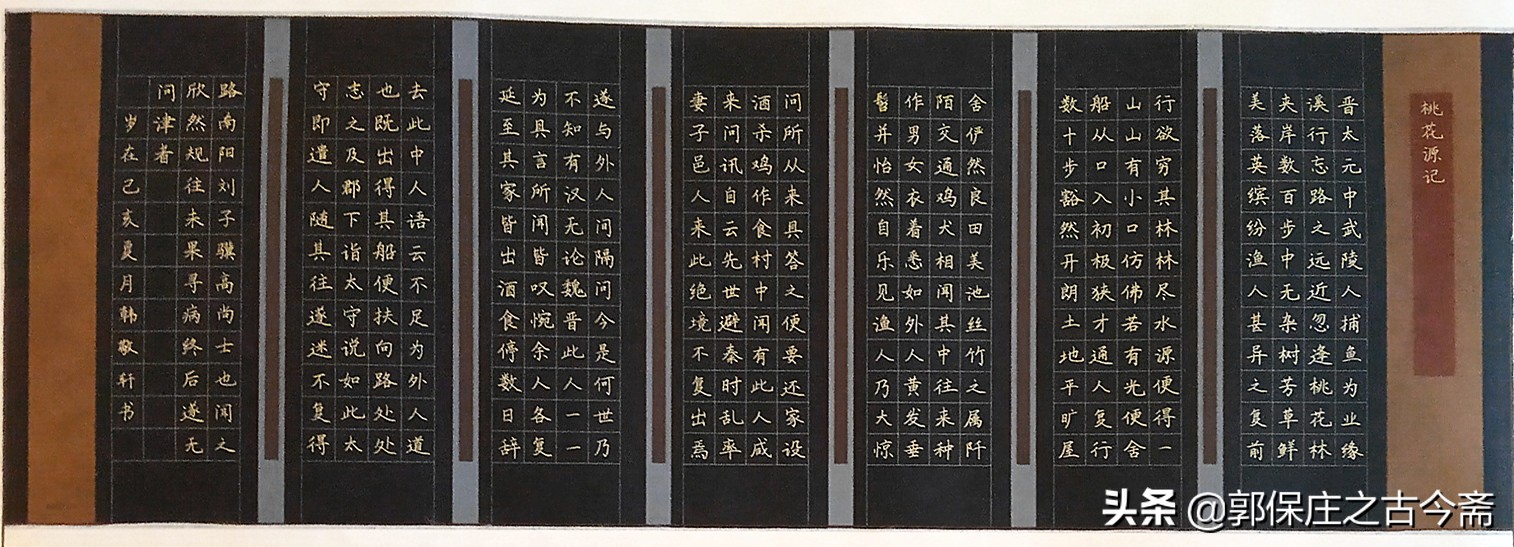 桃花源记
晋太元中武陵人捕鱼为业缘
溪行忘路之远近忽逢桃花林
夹岸数百步中无杂树芳草鲜
美落英缤纷渔人甚异之复前
行欲穷其林林尽水源便得一
山山有小口仿佛若有光便舍
船从口入初极狭才通人复行
数十步豁然开朗土地平旷屋
舍俨然良田美池丝竹之属阡
陌交通鸡犬相闻其中往来种
作男女衣着悉如外人黄发垂
髫并怡然自乐见渔人乃大惊
问所从来具答之便要还家设
酒杀鸡作食村中闻有此人咸
来问讯自云先世避秦时乱率
妻子邑人来此绝境不复出焉
遂与外人间隔问今是何世乃
不知有汉无论魏晋此人一一
为具言所闻皆叹惋余人各复
延至其家皆出酒食停数日辞
去此中人语云不足为外人道
也既出得其船便扶向路处处
志之及郡下诣太守说如此太
守即遣人随其往遂迷不复得
路南阳刘子骥高尚士也闻之
欣然规往未果寻病终后遂无
问津者
岁在己亥夏月韩敬轩书
头条 @郭保庄之古今斋